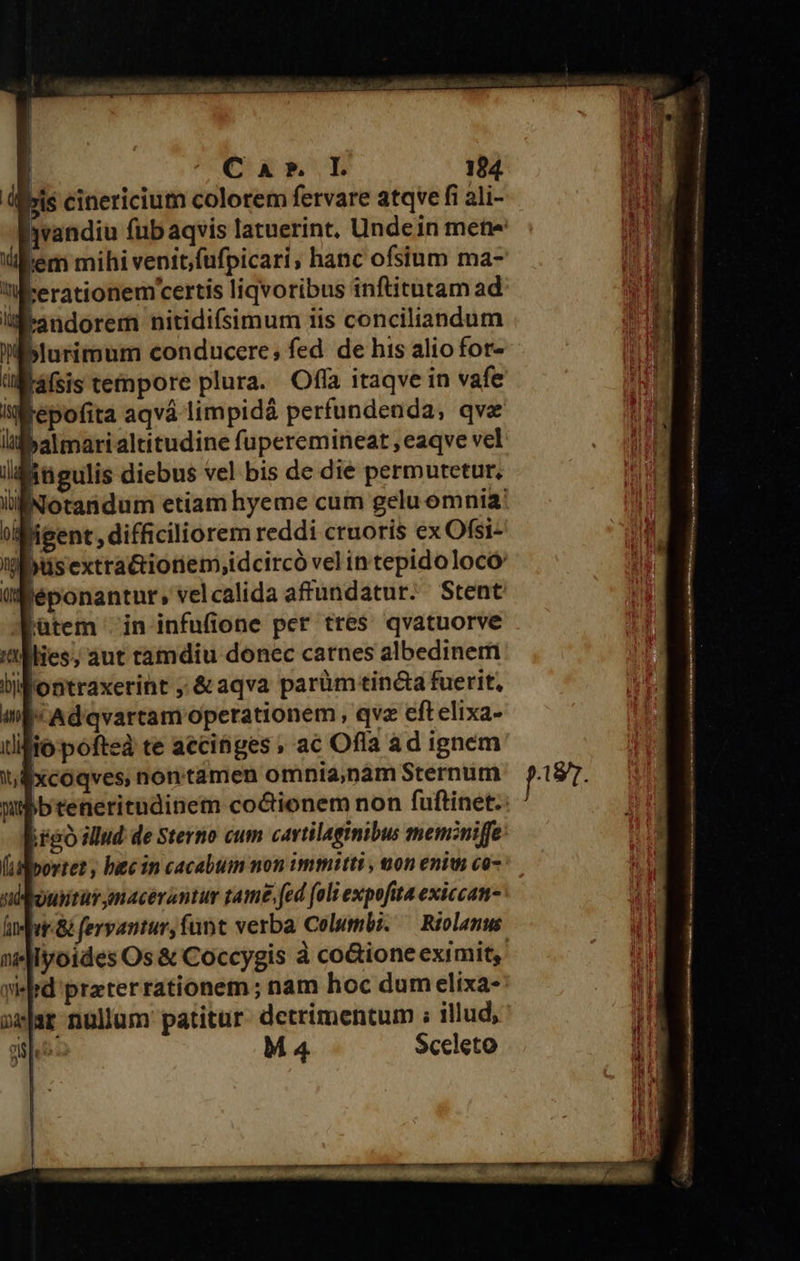 CAP. I. 184
cinericium colorem ſervare atqve ſi ali-
vandiu ſub aqvis latuerint. Unde in men-
tem mihi venit, ſuſpicari, hanc oſsium ma-
cerationem certis liqvoribus inſtitutam ad
candorem nitidiſsimum iis conciliandum
plurimum conducere, ſed de his alio for-
ſaſsis tempore plura. Oſſa itaqve in vaſe
repoſita aqvâ limpidâ perfundenda, qvæ
palmari altitudine ſuperemineat, eaqve vel
ſingulis diebus vel bis de die permutetur.
Notandum etiam hyeme cum gelu omnia
rigent, difficiliorem reddi cruoris ex Oſsi-
bus extractionem, idcircò vel in tepido loco
reponantur, vel calida affundatur. Stent
autem in infuſione per tres qvatuorve
dies, aut tamdiu donec carnes albedinem
contraxerint, & aqva parùm tincta fuerit.
Ad qvartam operationem, qvæ eſt elixa-
tio poſteà te accinges, ac Oſſa ad ignem
excoqves, non tamen omnia, nam Sternum
ob teneritudinem coctionem non ſuſtinet.
Ergò illud de Sterno cum cartilaginibus meminiſſe
oportet, hæc in cacabum non immitti, non enim co-
quuntur, macerantur tamẽ, ſed ſoli expoſita exiccan-
tur & ſervantur, ſunt verba Columbi. Riolanus
Hyoides Os & Coccygis à coctione eximit,
ſed præter rationem; nam hoc dum elixa-
tur nullum patitur detrimentum; illud,
M 4 Sceleto
p. 187.